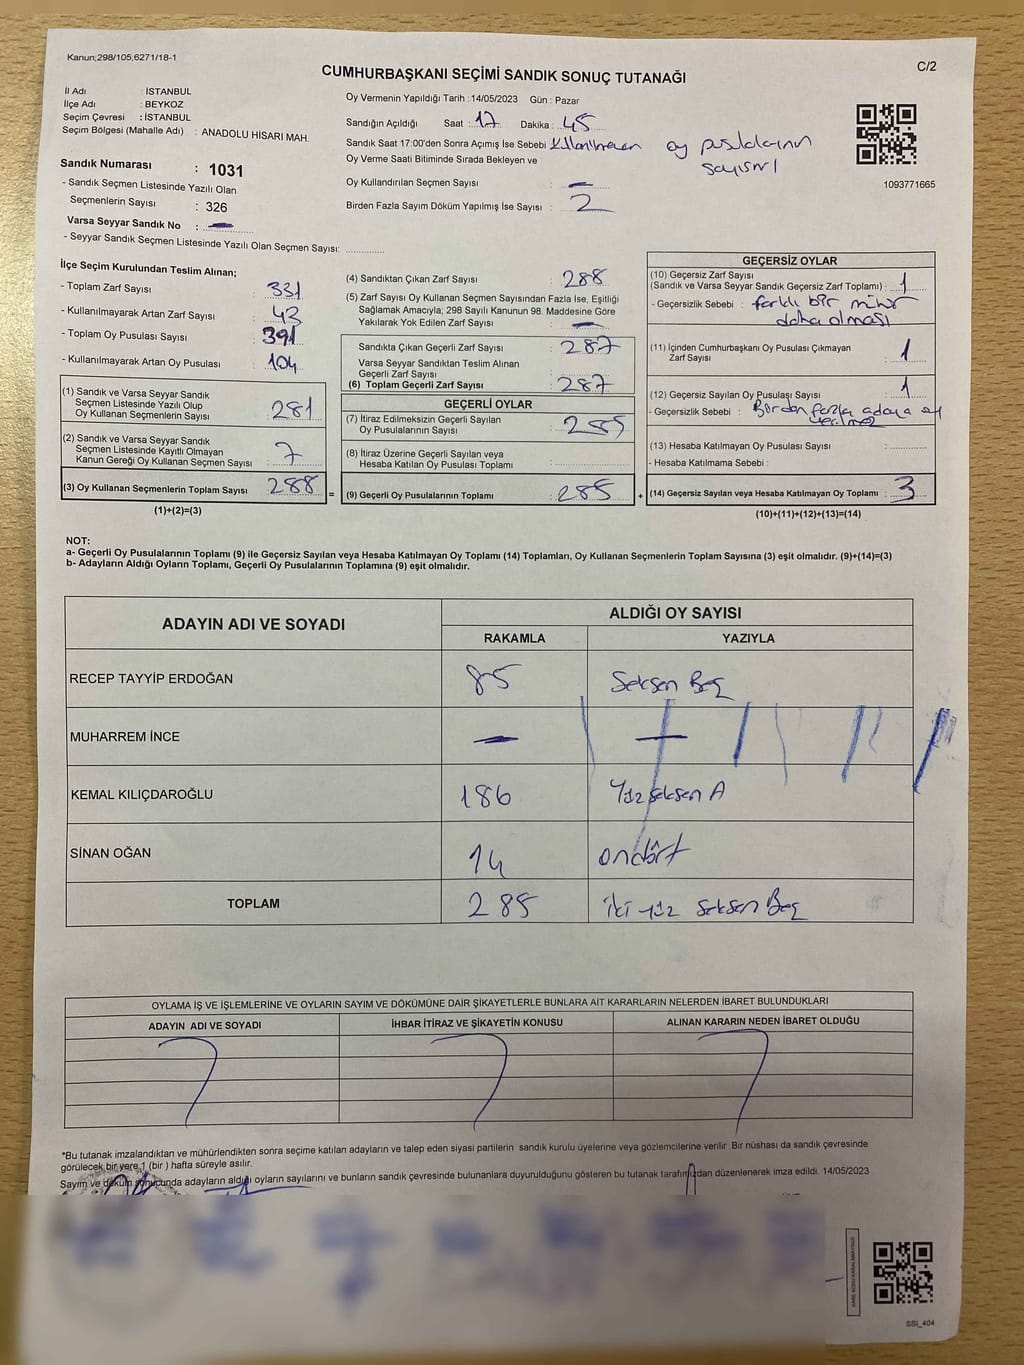 Kanun;298/105;6271/18-1
C/2
CUMHURBAŞKANI SEÇİMİ SANDIK SONUÇ TUTANAĞI
İl Adı : İSTANBUL
İlçe Adı : BEYKOZ
Seçim Çevresi : İSTANBUL
Seçim Bölgesi (Mahalle Adı) : ANADOLU HİSARI MAH.
Sandık Numarası : 1031
- Sandık Seçmen Listesinde Yazılı Olan
Seçmenlerin Sayısı : 326
Varsa Seyyar Sandık No : —
- Seyyar Sandık Seçmen Listesinde Yazılı Olan Seçmen Sayısı:
Oy Vermenin Yapıldığı Tarih : 14/05/2023 Gün : Pazar
Sandığın Açıldığı Saat : 17 Dakika : 45
Sandık Saat 17:00'den Sonra Açımış İse Sebebi Kullanılmayan oy pusulalarının
sayısmı
Oy Verme Saati Bitiminde Sırada Bekleyen ve
Oy Kullandırılan Seçmen Sayısı : —
Birden Fazla Sayım Döküm Yapılmış İse Sayısı : 2
1093771665
İlçe Seçim Kurulundan Teslim Alınan;
- Toplam Zarf Sayısı : 331
- Kullanılmayarak Artan Zarf Sayısı : 43
- Toplam Oy Pusulası Sayısı : 391
- Kullanılmayarak Artan Oy Pusulası : 104
(1) Sandık ve Varsa Seyyar Sandık
Seçmen Listesinde Yazılı Olup
Oy Kullanan Seçmenlerin Sayısı : 281
(2) Sandık ve Varsa Seyyar Sandık
Seçmen Listesinde Kayıtlı Olmayan
Kanun Gereği Oy Kullanan Seçmen Sayısı : 7
(3) Oy Kullanan Seçmenlerin Toplam Sayısı : 288
(1)+(2)=(3)
=
(4) Sandıktan Çıkan Zarf Sayısı : 288
(5) Zarf Sayısı Oy Kullanan Seçmen Sayısından Fazla İse, Eşitliği
Sağlamak Amacıyla; 298 Sayılı Kanunun 98. Maddesine Göre
Yakılarak Yok Edilen Zarf Sayısı : —
Sandıkta Çıkan Geçerli Zarf Sayısı : 287
Varsa Seyyar Sandıktan Teslim Alınan
Geçerli Zarf Sayısı
(6) Toplam Geçerli Zarf Sayısı : 287
GEÇERLİ OYLAR
(7) İtiraz Edilmeksizin Geçerli Sayılan
Oy Pusulalarının Sayısı : 285
(8) İtiraz Üzerine Geçerli Sayılan veya
Hesaba Katılan Oy Pusulası Toplamı :
(9) Geçerli Oy Pusulalarının Toplamı : 285
+
GEÇERSİZ OYLAR
(10) Geçersiz Zarf Sayısı
(Sandık ve Varsa Seyyar Sandık Geçersiz Zarf Toplamı) : 1
- Geçersizlik Sebebi : farklı bir mühür
daha olması
(11) İçinden Cumhurbaşkanı Oy Pusulası Çıkmayan
Zarf Sayısı : 1
(12) Geçersiz Sayılan Oy Pusulası Sayısı : 1
- Geçersizlik Sebebi : Birden fazla adaya oy
verilmez
(13) Hesaba Katılmayan Oy Pusulası Sayısı :
- Hesaba Katılmama Sebebi :
(14) Geçersiz Sayılan veya Hesaba Katılmayan Oy Toplamı : 3
(10)+(11)+(12)+(13)=(14)
NOT:
a- Geçerli Oy Pusulalarının Toplamı (9) ile Geçersiz Sayılan veya Hesaba Katılmayan Oy Toplamı (14) Toplamları, Oy Kullanan Seçmenlerin Toplam Sayısına (3) eşit olmalıdır. (9)+(14)=(3)
b- Adayların Aldığı Oyların Toplamı, Geçerli Oy Pusulalarının Toplamına (9) eşit olmalıdır.
ADAYIN ADI VE SOYADI ALDIĞI OY SAYISI
RAKAMLA YAZIYLA
RECEP TAYYİP ERDOĞAN 85 Seksen Beş
MUHARREM İNCE — —
KEMAL KILIÇDAROĞLU 186 Yüz seksen A
SİNAN OĞAN 14 ondört
TOPLAM 285 iki yüz seksen Beş
OYLAMA İŞ VE İŞLEMLERİNE VE OYLARIN SAYIM VE DÖKÜMÜNE DAİR ŞİKAYETLERLE BUNLARA AİT KARARLARIN NELERDEN İBARET BULUNDUKLARI
ADAYIN ADI VE SOYADI İHBAR İTİRAZ VE ŞİKAYETİN KONUSU ALINAN KARARIN NEDEN İBARET OLDUĞU
*Bu tutanak imzalandıktan ve mühürlendikten sonra seçime katılan adayların ve talep eden siyasi partilerin sandık kurulu üyelerine veya gözlemcilerine verilir. Bir nüshası da sandık çevresinde
görülecek bir yere 1 (bir) hafta süreyle asılır.
Sayım ve döküm sonucunda adayların aldığı oyların sayılarını ve bunların sandık çevresinde bulunanlara duyurulduğunu gösteren bu tutanak tarafımızdan düzenlenerek imza edildi. 14/05/2023
SSI_404